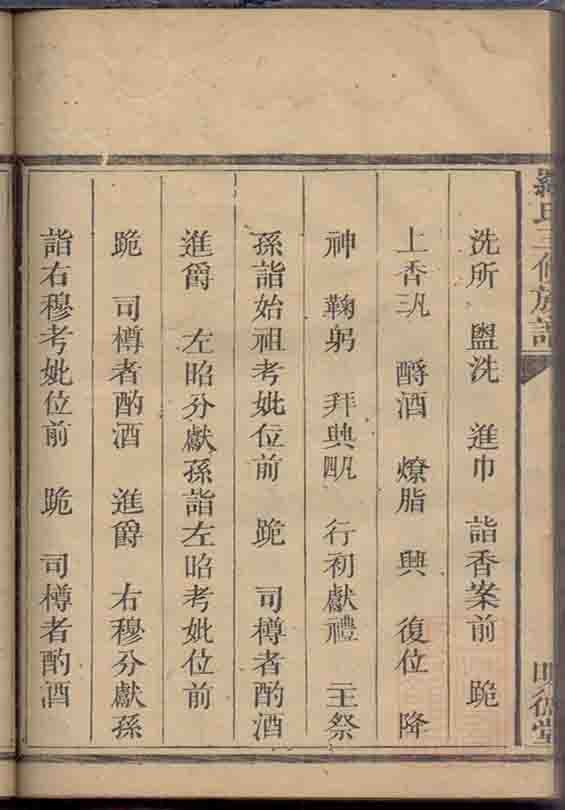 羅氏三修族譜
明德堂
洗所 盥洗 進巾 詣香案前 跪
上香三凡 酹酒 燎脂 興 復位 降
神 鞠躬 拜興四凡 行初獻禮 主祭
孫詣始祖考妣位前 跪 司樽者酌酒
進爵 左昭分獻孫詣左昭考妣位前
跪 司樽者酌酒 進爵 右穆分獻孫
詣右穆考妣位前 跪 司樽者酌酒